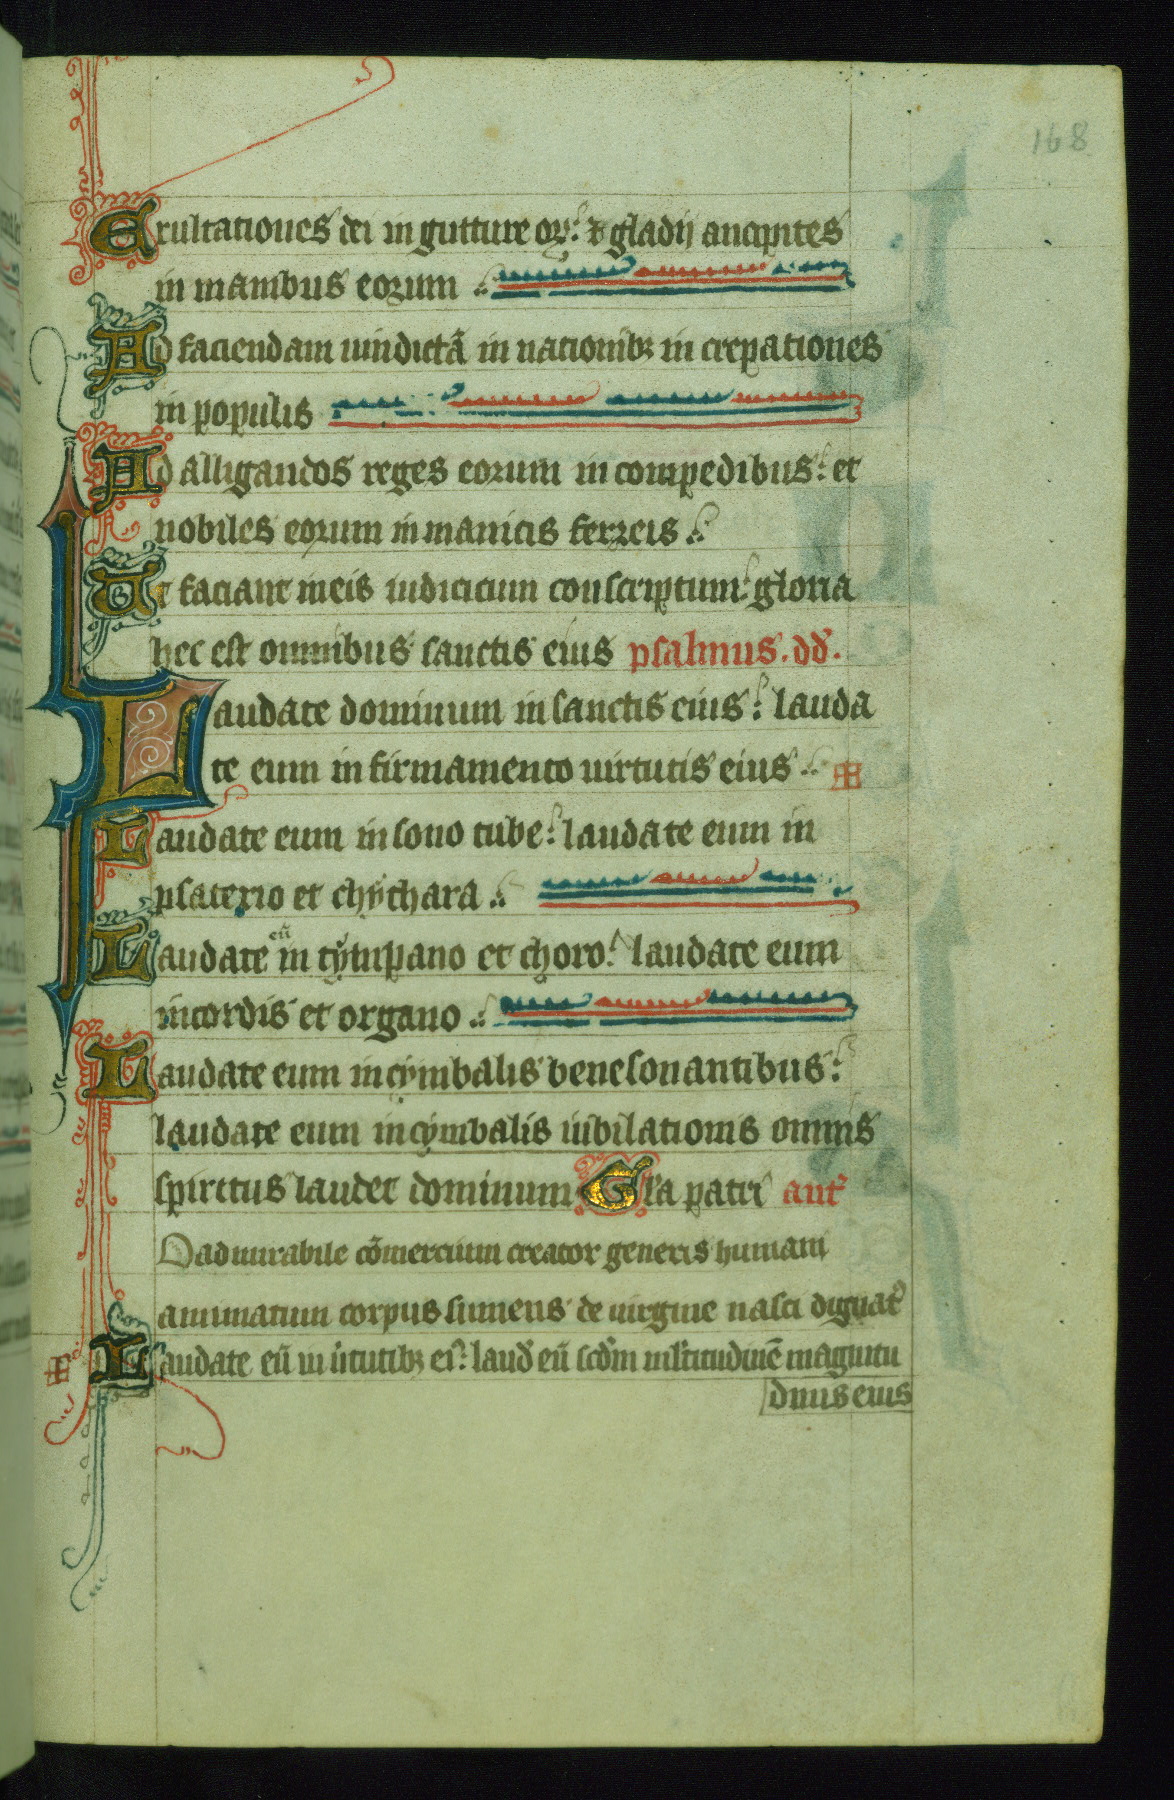 168
Exultationes dei in gutture oꝝ: & gladij ancipites
in manibus eorum
Ad faciendam uindictā in nationibꝫ in crepationes
in populis
Ad alligandos reges eorum in compedibus: et
nobiles eorum in manicis ferreis
Ut faciant in eis iudicium conscriptum: gloria
hec est omnibus sanctis eius psalmus. dd.
Laudate dominum in sanctis eius: lauda
te eum in firmamento uirtutis eius
Laudate eum in sono tube: laudate eum in
psaterio et chythara
Laudate eū in tympano et choro: laudate eum
in cordis et organo
Laudate eum in cymbalis benesonantibus:
laudate eum in cymbalis iubilationis omnis
spiritus laudet dominum Gl'a patri ant'
O admirabile cōmercium creator generis humani
animatum corpus sumens de uirgine nasci dignat'
Laudate eū in u'tutibꝫ ei': laud' eū scd'm m'ltitudinē magnitu
dinis eius